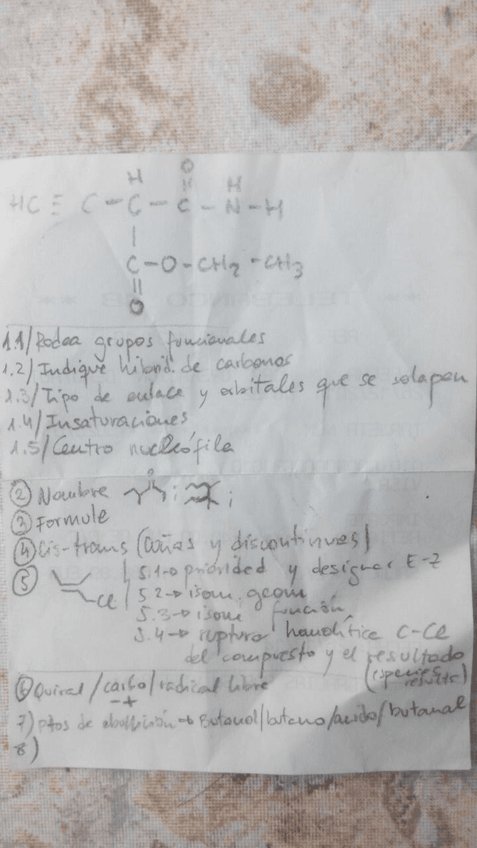 H O H
HC ≡ C - C - C - N - H
C - O - CH2 - CH3
O
1.1/ Rodea grupos funcionales
1.2/ Indique hibrid. de carbonos
1.3/ Tipo de enlace y orbitales que se solapan
1.4/ Insaturaciones
1.5/ Centro nucleófila
② Nombre ; ;
③ Formule
④ Cis-trans (cuñas y discontinuas)
⑤ Cl 5.1→ prioridad y designar E-Z
5.2→ isom. geom
5.3→ isom función
5.4→ ruptura homolítica C-Cl
del compuesto y el resultado
(especies result.)
⑥ Quiral / carbo / radical libre
- +
7) ptos de ebullición → Butanol/butano/ácido/butanal
8)